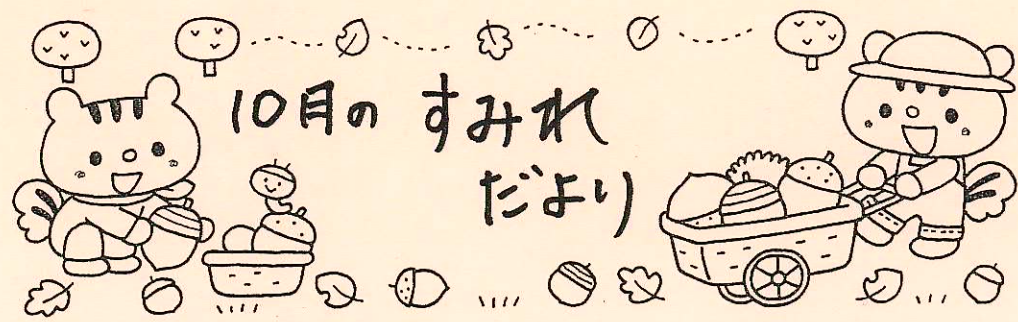 10月の すみれ
だより